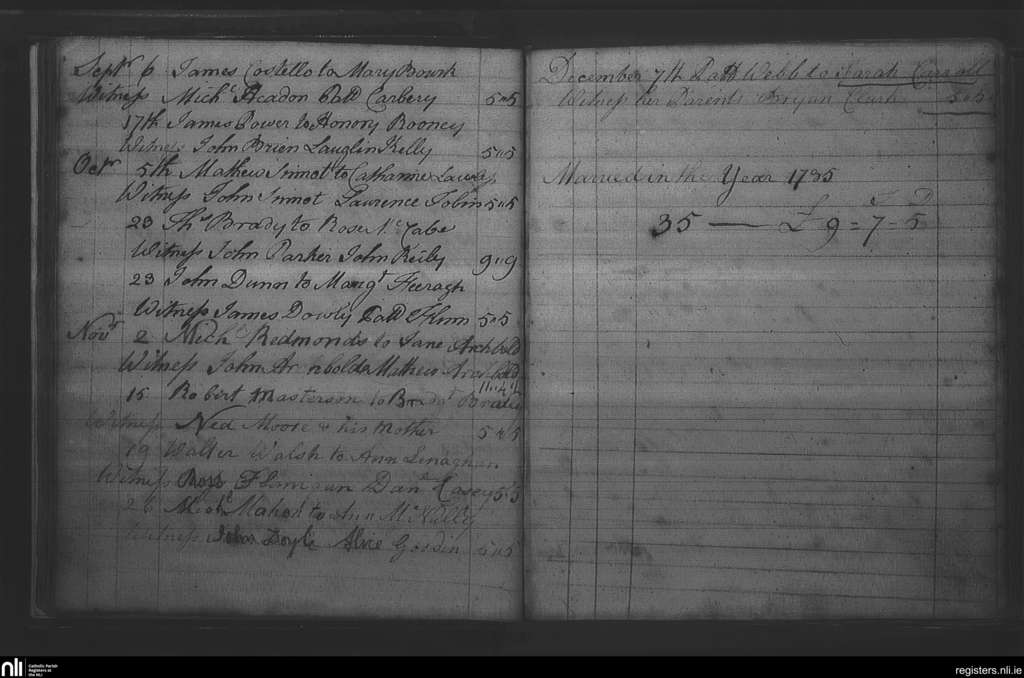 Septr 6 James Costello to Mary Bourk
Witness Michl Headon Patt Carbery 5"5
17th James Power to Honory Rooney
Witness John Brien Lauglin Kelly 5"5
Octr 5th Mathew Sinnot to Catharine
Witness John Sinnot Lawrence Tobin 5"5
23 Thos Brady to Rose McCabe
Witness John Parker John Keily 9"9
23 John Dunn to Margt Heeragh
Witness James Dowly Patt Flinn 5"5
Novr 2 Michl Redmonds to Jane Archbold
Witness John Archbold & Mathew Archbold
11"4½
15 Robert Masterson to Bridgt Brady
Witness Ned Moore & his Mother 5"5
19 Walter Walsh to Ann Lenaghan
Witness Ross Finnigan Danl Casey 5"5
26 Michl Mahon to Ann McNally
Witness John Doyle Alice Gosden 5"5
December 7th Patt Webb to Sarah Carroll
Witness her Parents Bryan Clark 5"5
Married in the Year 1785
35 — £ 9 = 7 = 5
nli
Catholic Parish
Registers at
the NLI
registers.nli.ie